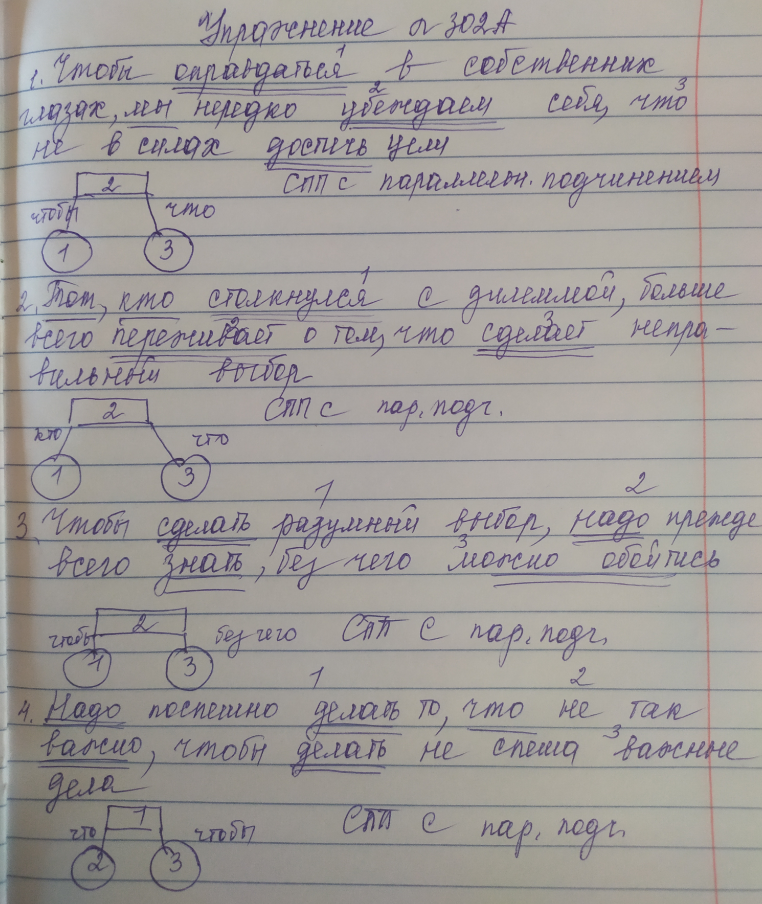 Упражнение № 302А
1
1. Чтобы оправдаться в собственних
2 3
глазах, мы нередко убеждаем себя, что
не в силах достичь цели
2 СПП с параллельн. подчинением
чтобы что
1 3
1
2. Тот, кто столкнулся с дилеммой, больше
2 3
всего переживает о том, что сделает непра-
вильный выбор
2 СПП с пар. подч.
кто что
1 3
1 2
3. Чтобы сделать разумный выбор, надо прежде
3
всего знать, без чего можно обойтись
2
чтобы без чего СПП с пар. подч.
1 3
1 2
4. Надо поспешно делать то, что не так
3
важно, чтобы делать не спеша важные
дела
1 СПП с пар. подч.
что чтобы
2 3